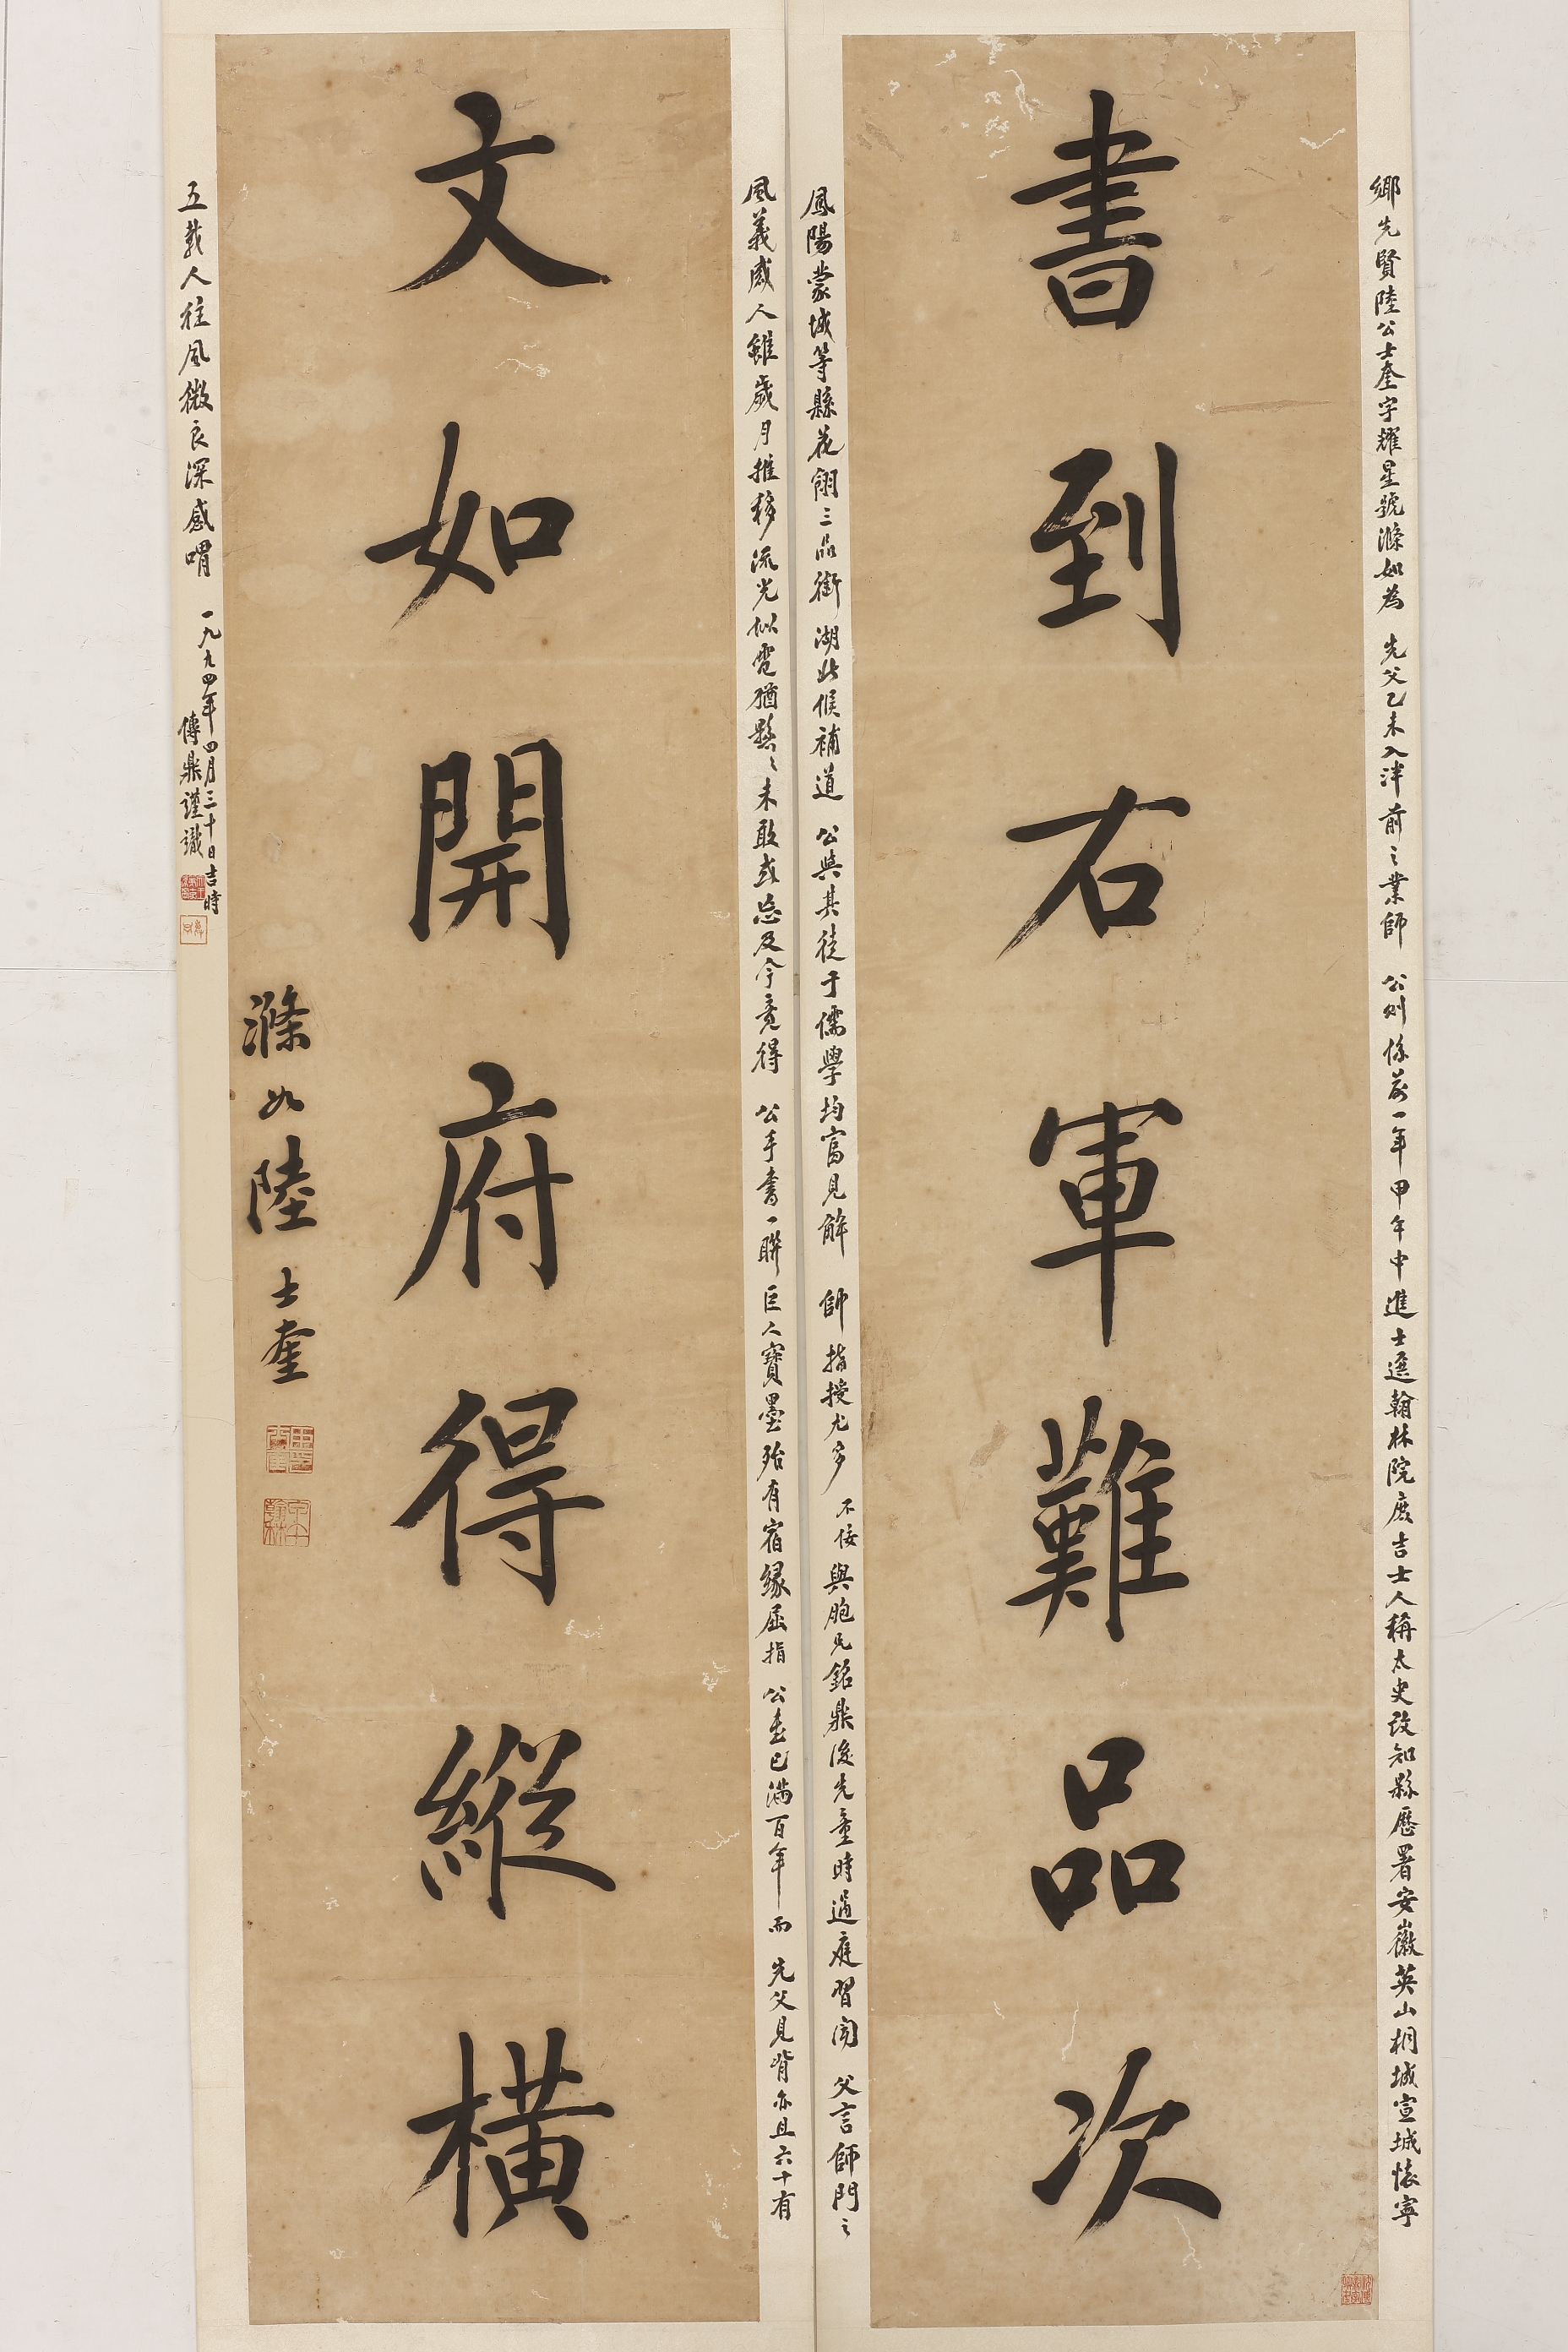 書到右軍難品次
文如開府得縱橫
滌如陸士奎
鄉先賢陸公士奎字耀星號滌如為 先父乙未入泮前之業師 公則係前一年甲午中進士選翰林院庶吉士人稱太史改知縣歷署安徽英山桐城宣城懷寧
鳳陽蒙城等縣花翎三品銜湖北候補道 公與其徒于儒學均富見解 師指授尤多 不佞與胞兄銘鼎後先童時過庭習聞 父言師門之
風義感人雖歲月推移流光似電猶懸懸未敢或忘及今竟得 公手書一聯巨人寶墨殆有宿緣屈指 公書已滿百年而 先父見背亦且六十有
五載人往風微良深感喟 一九九四年四月三十日吉時
傳鼎謹識